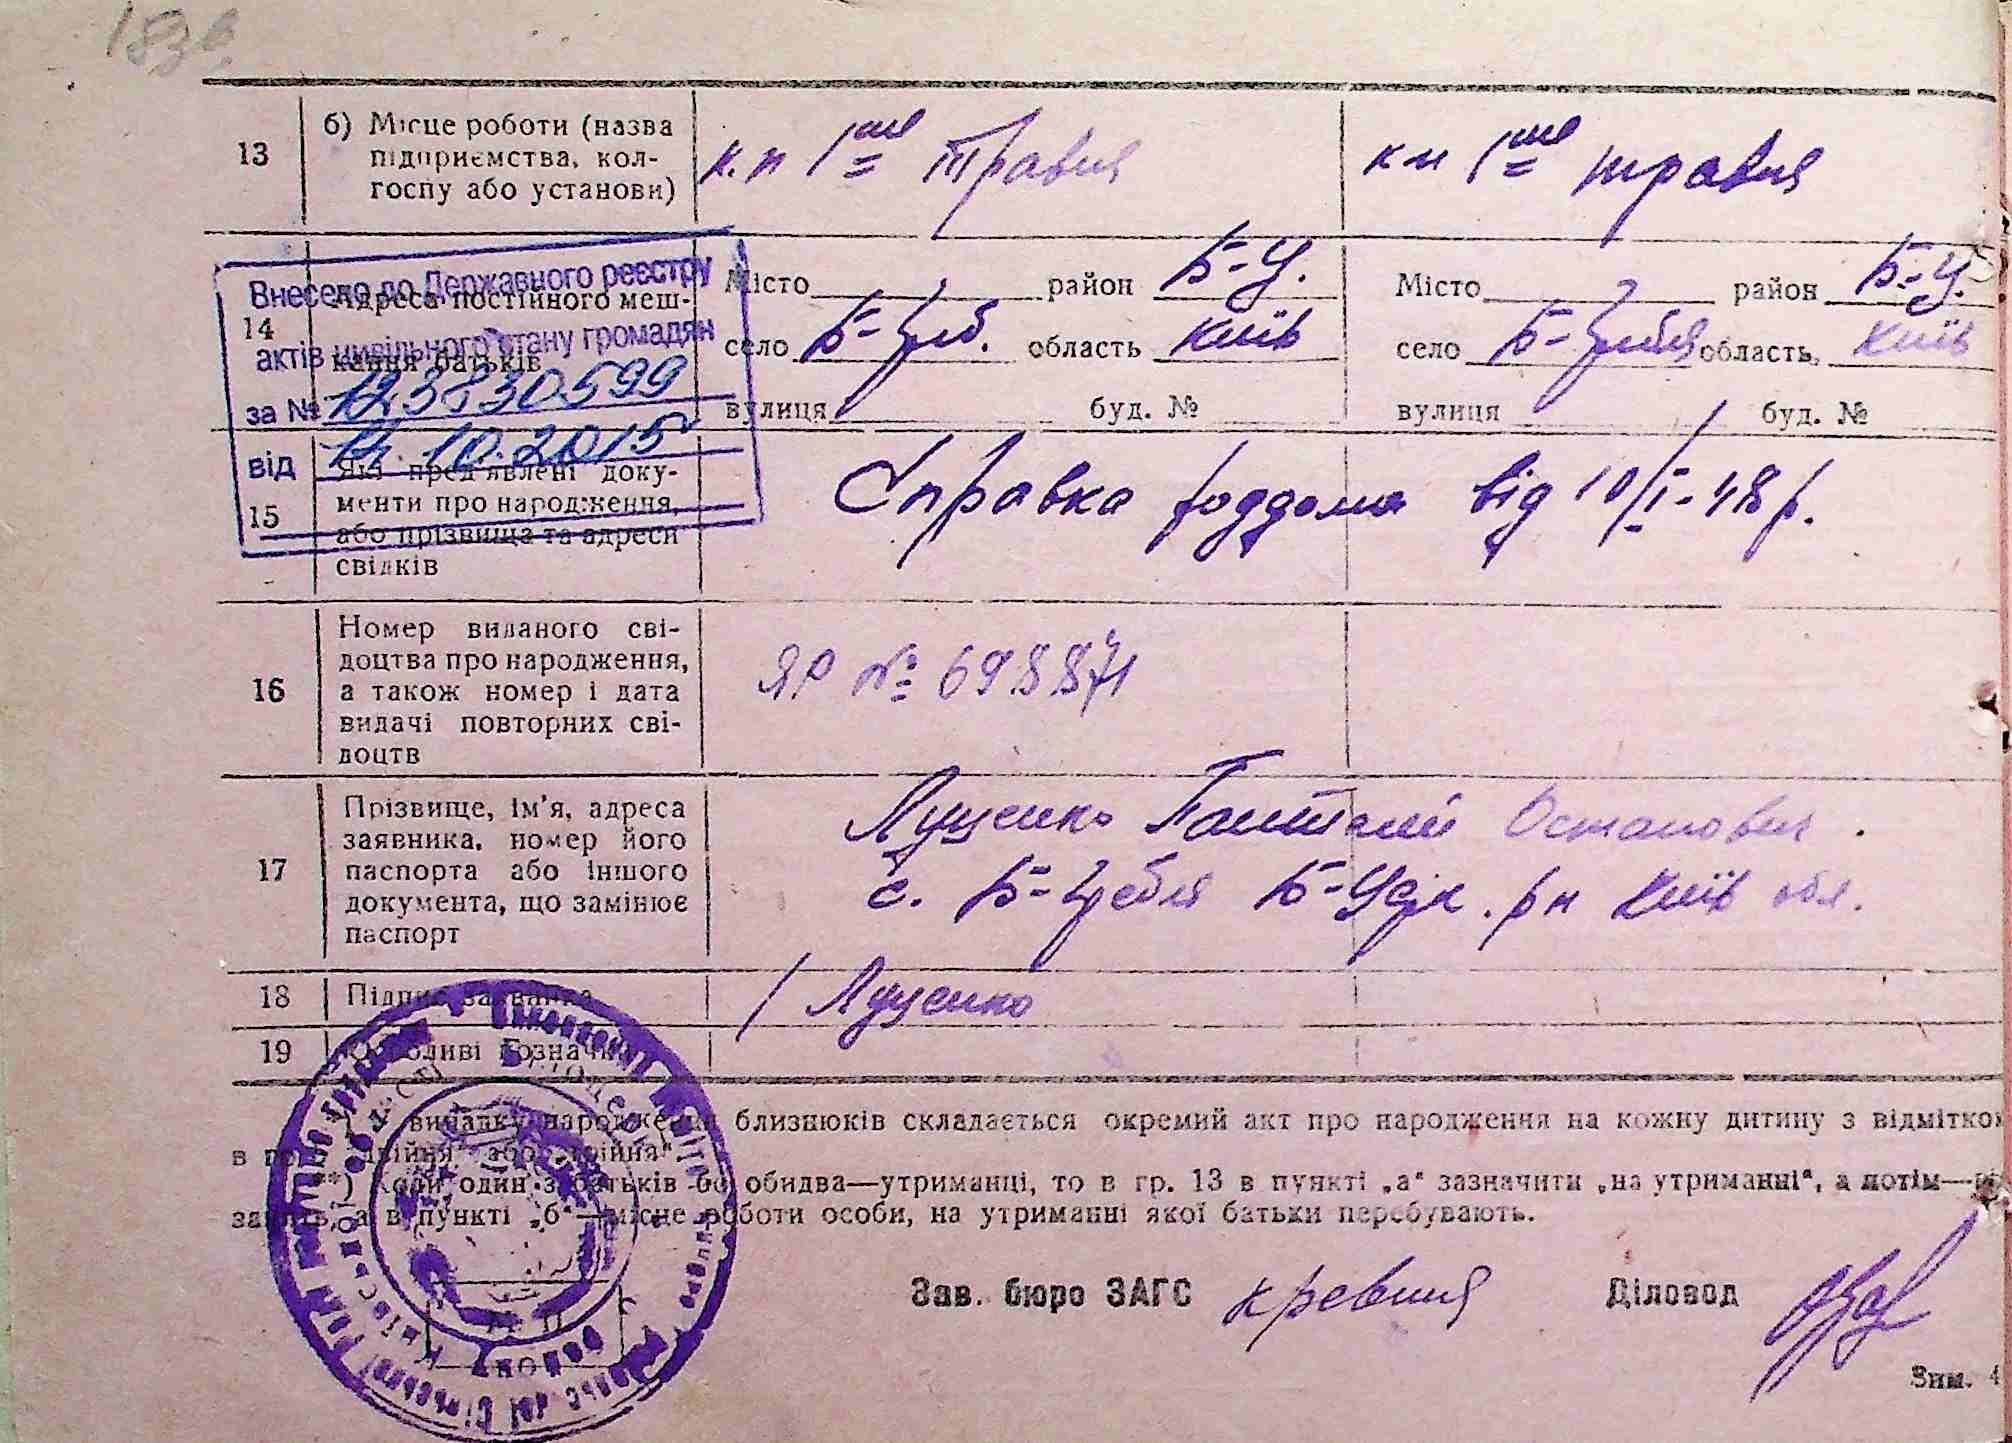 183 в.
13 б) Місце роботи (назва підприємства, колгоспу або установи)
к.п 1ше Травня
к-п 1ше травня
14 Адреса постійного мешкання батьків
Місто район Б-Ц.
село Б-Греб. область Київ
вулиця буд. №
Місто район Б-Ц.
село Б-Гребля область Київ
вулиця буд. №
Внесено до Державного реєстру
актів цивільного стану громадян
за № 123830599
від 10.2015
15 Які пред'явлені документи про народження, або прізвища та адреси свідків
Справка роддома від 10/I-48 р.
16 Номер виданого свідоцтва про народження, а також номер і дата видачі повторних свідоцтв
ЯР № 698871
17 Прізвище, ім'я, адреса заявника, номер його паспорта або іншого документа, що замінює паспорт
Луценко Остапович.
с. Б-Гребля Б-Церк. р-н Київ обл.
18 Підпис заявника
Луценко
19 Особливі позначки
*) У випадку народження близнюків складається окремий акт про народження на кожну дитину з відміткою
в гр. "двійня" або "трійня".
**) Коли один з батьків або обидва—утриманці, то в гр. 13 в пункті „а" зазначити „на утриманні", а потім—
а в пункті „б"—місце роботи особи, на утриманні якої батьки перебувають.
Зав. бюро ЗАГС
Діловод
М. П.
Зим. 4